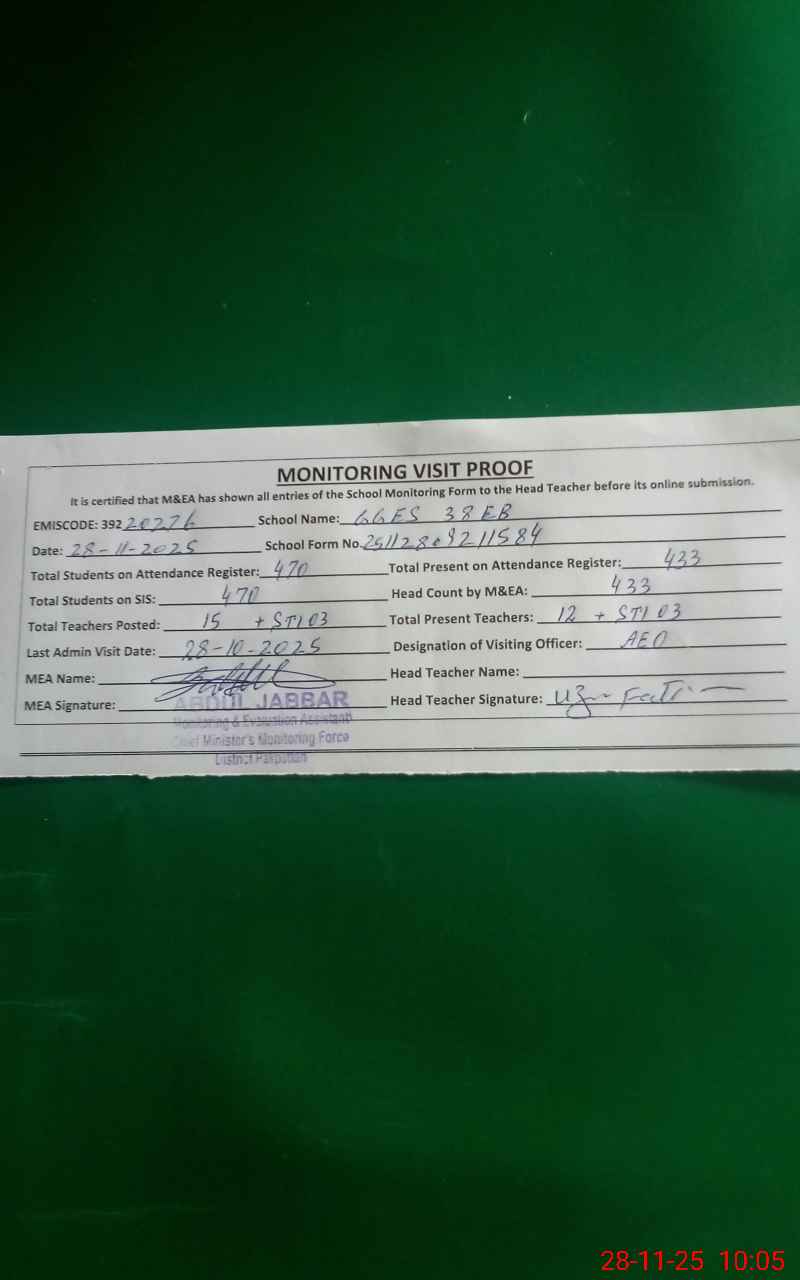 MONITORING VISIT PROOF
It is certified that M&EA has shown all entries of the School Monitoring Form to the Head Teacher before its online submission.
EMISCODE: 39220276 School Name: GGES 38EB
Date: 28-11-2025 School Form No. 25112809211584
Total Students on Attendance Register: 470 Total Present on Attendance Register: 433
Total Students on SIS: 470 Head Count by M&EA: 433
Total Teachers Posted: 15 + STI 03 Total Present Teachers: 12 + STI 03
Last Admin Visit Date: 28-10-2025 Designation of Visiting Officer: AEO
MEA Name: Head Teacher Name:
MEA Signature: Head Teacher Signature:
ABDUL JABBAR
Monitoring & Evaluation Assistant
Chief Minister's Monitoring Force
District Pakpattan
28-11-25 10:05